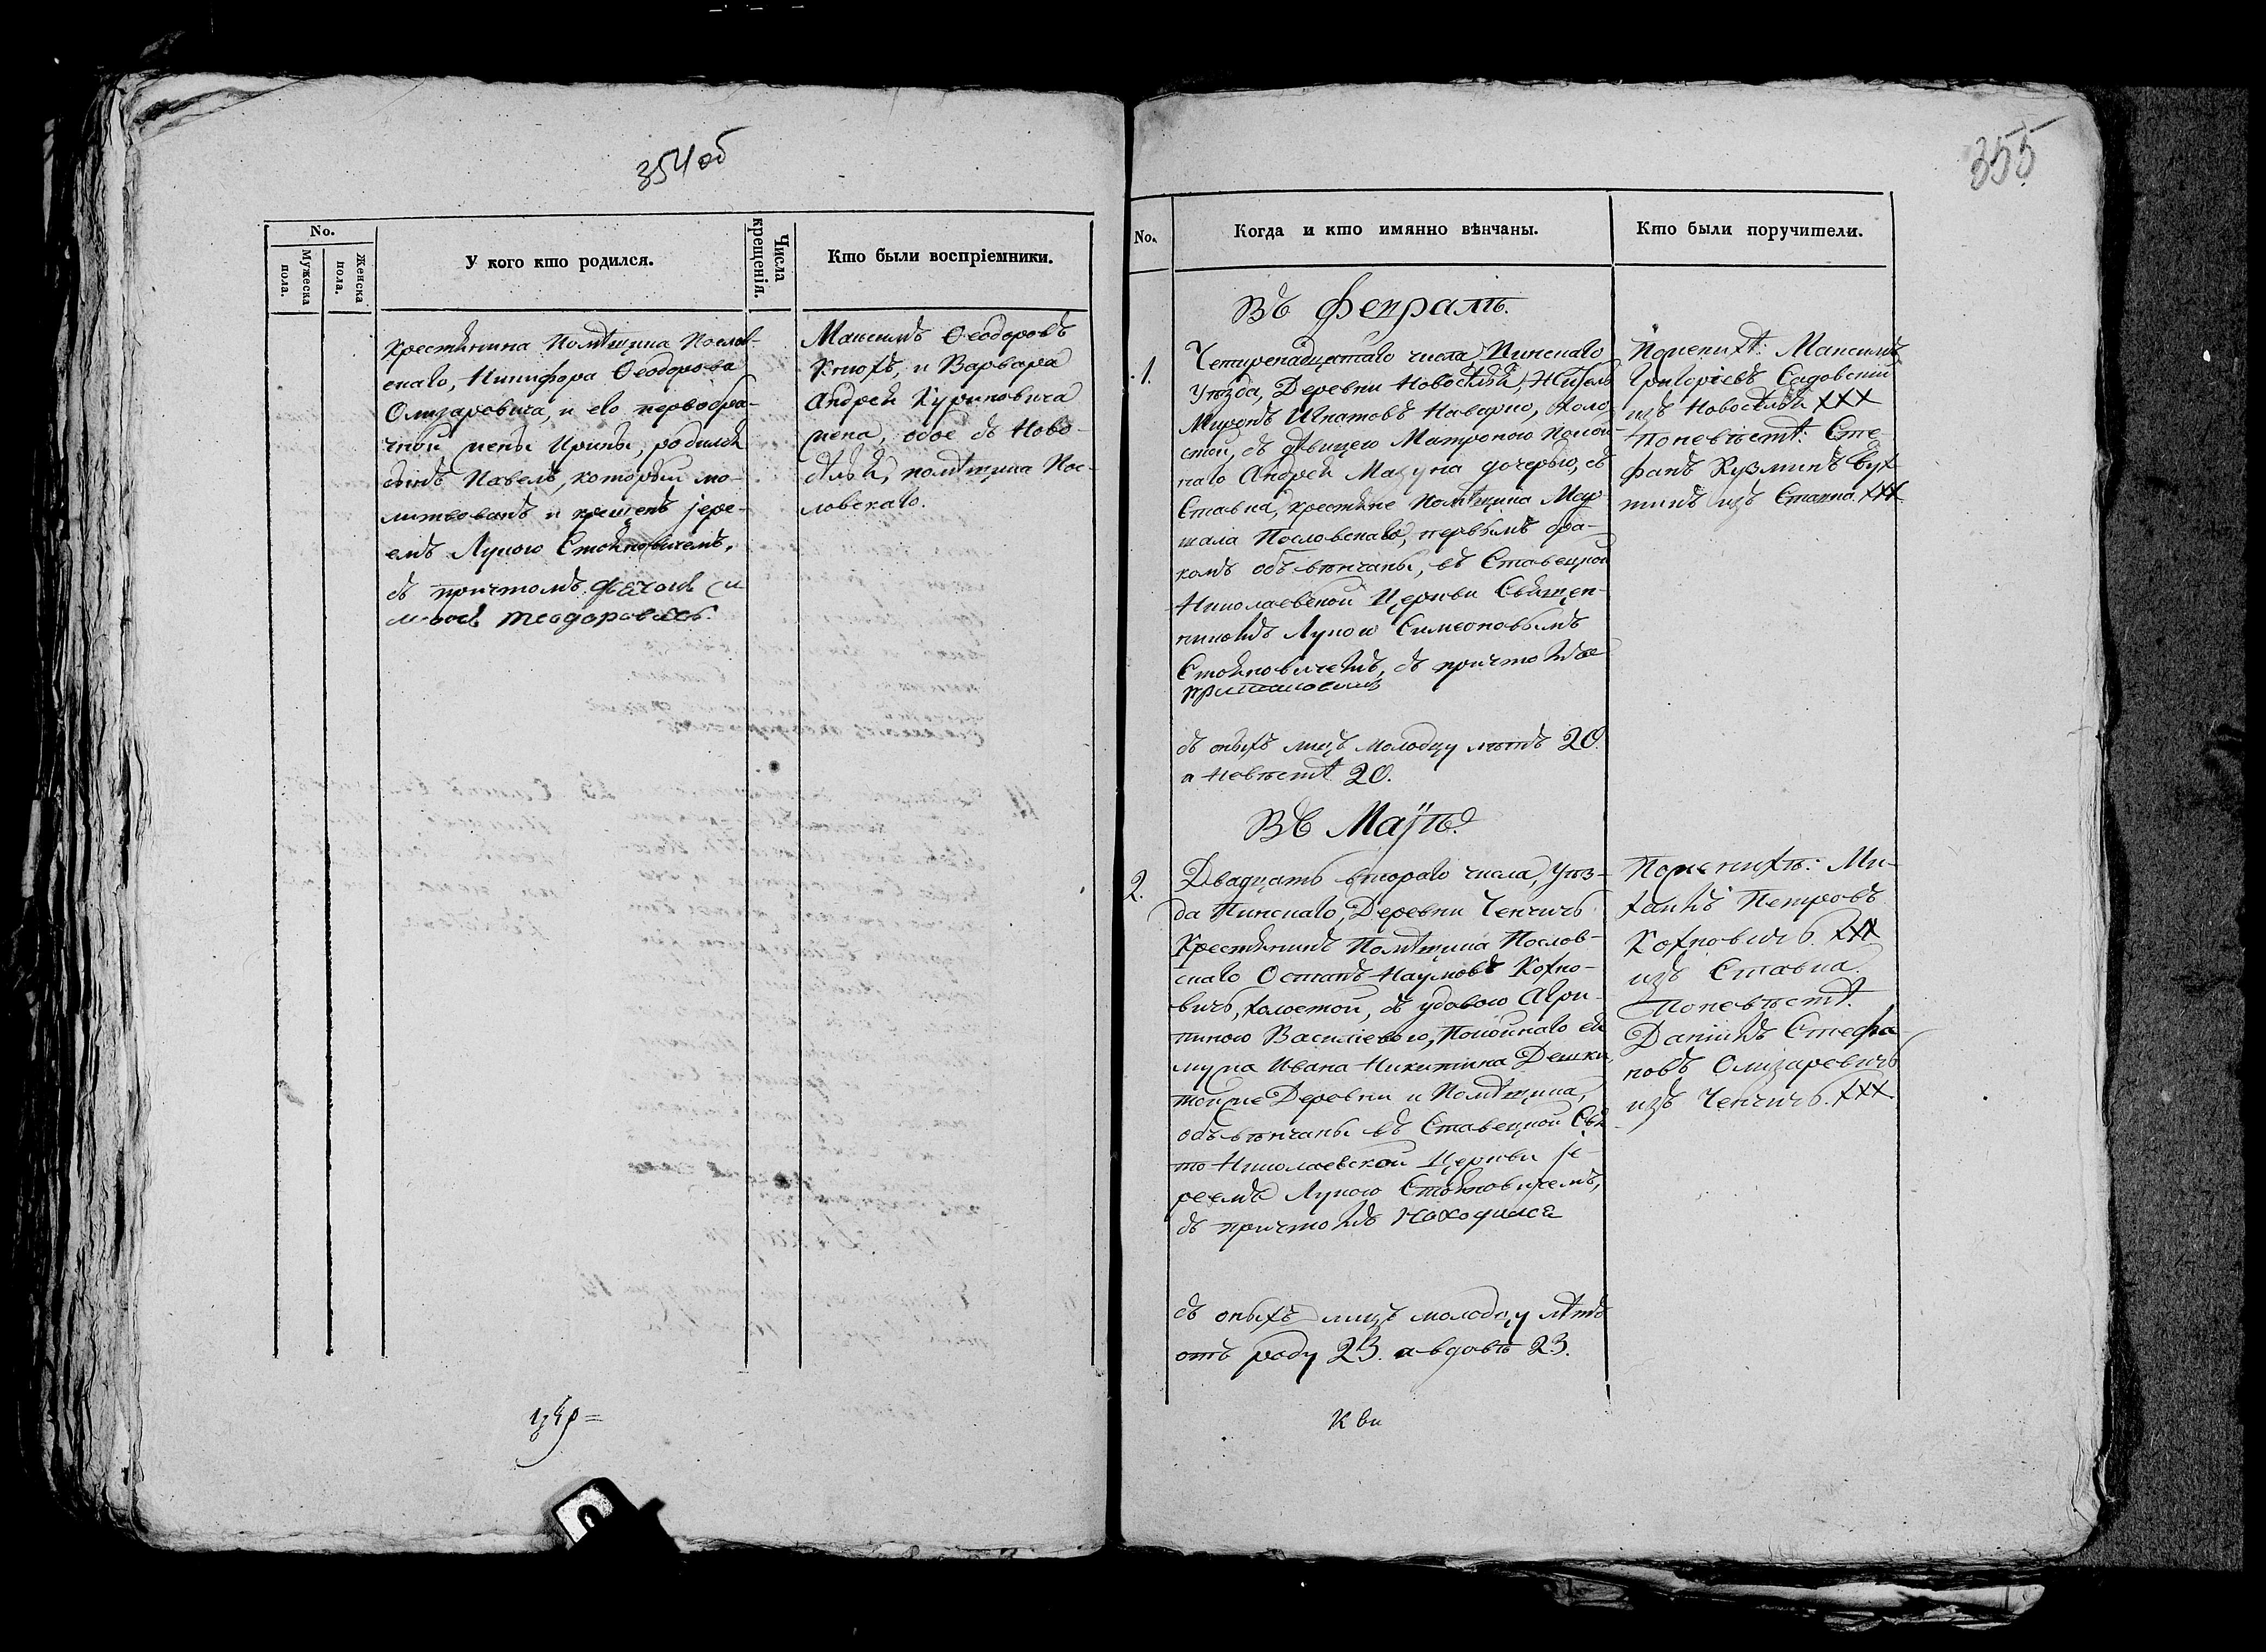 354 об
No.
Мужеска пола.
Женска пола.
У кого кто родился.
Числа крещенія.
Кто были воспріемники.
Крестянина Помѣщика Послов-
скаго, Никифора Ѳеодорова
Олизаровича, и его первобра-
чной жены Ирины, родился
сынъ Павелъ, который мо-
литвованъ и крещенъ јере-
емъ Лукою Стояновичемъ,
съ причтомъ
Максимъ Ѳеодоровъ
и Варвара
Андрея Куриловича
жена, обое съ Ново-
сѣлья, помѣщика Пос-
ловскаго.
355
No.
Когда и кто имянно вѣнчаны.
Кто были поручители.
Въ Февралѣ.
1.
Четиренадцатаго числа, Пинскаго
Уѣзда, Деревни Новосѣлья, Житель
Миронъ Игнатовъ холо-
стой, съ дѣвицею Матроною покой-
наго Андрея дочерью, съ
Ставка, крестяне Помѣщика Мар-
шала Пословскаго, первымъ бра-
комъ объвѣнчаны, въ Ставецкой
Николаевской Церкви Священ-
никомъ Лукою Симеоновымъ
Стояновичемъ, съ причтомъ
съ оныхъ лицъ молодцу лѣтъ 20.
а невѣстѣ 20.
По женихѣ: Максимъ
Григоріевъ Садовскій
изъ Новосѣлья ХХХ
По невѣстѣ: Сте-
фанъ Кузминъ
изъ Ставка. ХХХ
Въ Маѣ.
2.
Двадцать втораго числа, Уѣз-
да Пинскаго, Деревни Ченчичь
Крестянинъ Помѣщика Послов-
скаго Остапъ Наумовъ Кохно-
вичь, холостой, съ удовою Агри-
пиною Василіевою, Покойнаго ея
мужа Ивана Никитина Дешки,
тойже Деревни и Помѣщика,
объвѣнчаны въ Ставецкой Свя-
то Николаевской Церкви је-
реемъ Лукою Стояновичемъ,
съ причтомъ
съ оныхъ лицъ молодцу лѣтъ
отъ роду 23. а вдовѣ 23.
По женихѣ: Ми-
хаилъ Петровъ
Кохновичь. ХХХ
изъ Ставка.
По невѣстѣ.
Даніилъ Стефа-
новъ Олизаревичь
изъ Ченчичь. ХХХ